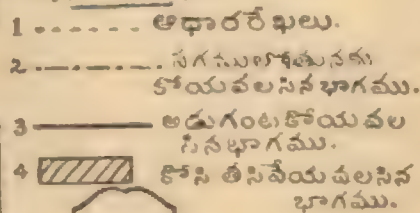 1 ఆధారరేఖలు.
2 సగములోతునకు
కోయవలసిన భాగము.
3 అడుగంటకోయవల
సినభాగము.
4 కోసి తీసివేయవలసిన
భాగము.